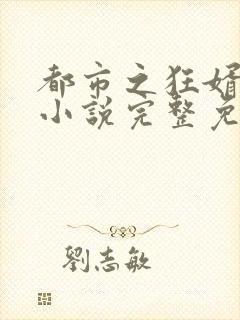 都市之狂婿
小說完整免
劉志敏